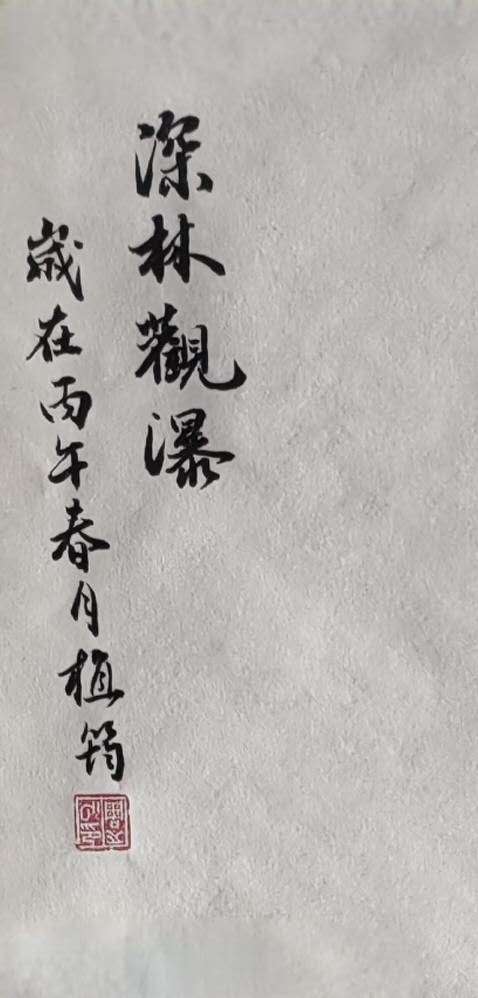 深林觀瀑
歲在丙午春月植筠